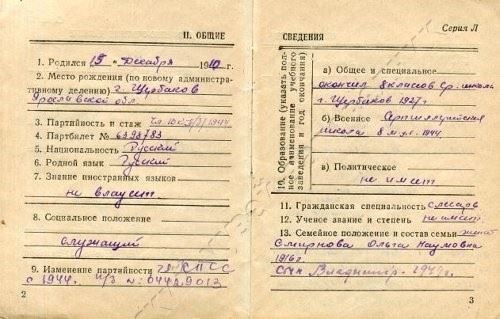 II. ОБЩИЕ
1. Родился 15 " Декабря 1910 г.
2. Место рождения (по новому администра-
тивному делению) г. Щербаков
Ярославской обл.
3. Партийность и стаж 1944
4. Партбилет № 6393783
5. Национальность Русский
6. Родной язык Русский
7. Знание иностранных языков
не владеет
8. Социальное положение
служащий
9. Изменение партийности КПСС
с 1944.
2
СВЕДЕНИЯ
Серия Л
10. Образование (указать пол-
ное наименование учебного
заведения и год окончания)
а) Общее и специальное
окончил 8 классов ср. школы
г. Щербаков 1927г.
б) Военное Артиллерийская
школа 1944
в) Политическое
не имеет
11. Гражданская специальность слесарь
12. Ученое звание и степень не имеет
13. Семейное положение и состав семьи женат
Смирнова Ольга Наумовна
1916г.
сын Владимир -
3